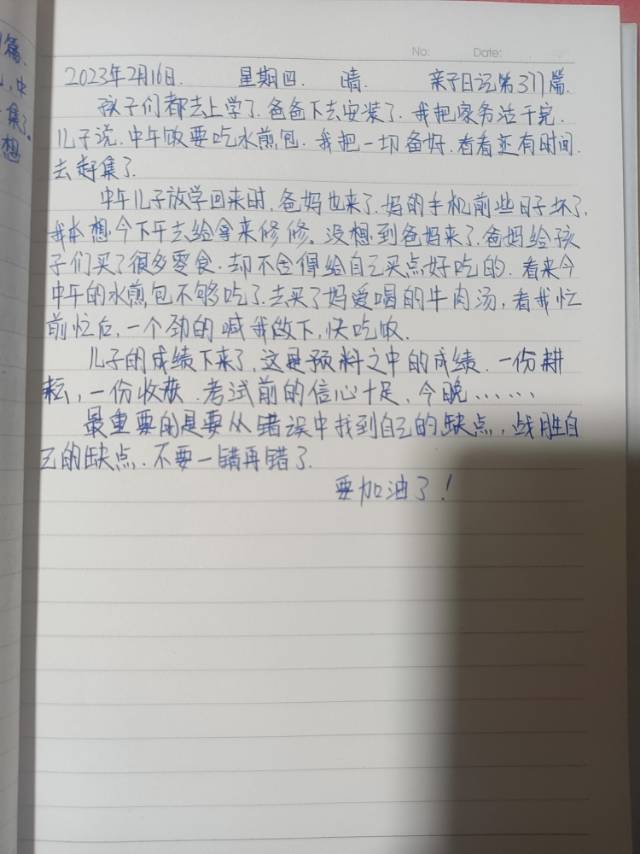 No: Date:
2023年2月16日. 星期四. 晴. 亲子日记第377篇.
孩子们都去上学了.爸爸下去安装了.我把家务活干完.
儿子说.中午饭要吃水煎包.我把一切备好.看看还有时间.
去赶集了.
中午儿子放学回来时.爸妈也来了.妈的手机前些日子坏了.
我本想今下午去给拿来修修。没想到爸妈来了.爸妈给孩
子们买了很多零食.却不舍得给自己买点好吃的.看来今
中午的水煎包不够吃了.去买了妈爱喝的牛肉汤,看我忙
前忙后,一个劲的喊我做下,快吃饭.
儿子的成绩下来了,这是预料之中的成绩.一份耕
耘,一份收获.考试前的信心十足,今晚……
最重要的是要从错误中找到自己的缺点,战胜自
己的缺点.不要一错再错了.
要加油了!
篇.
中
集了.
想